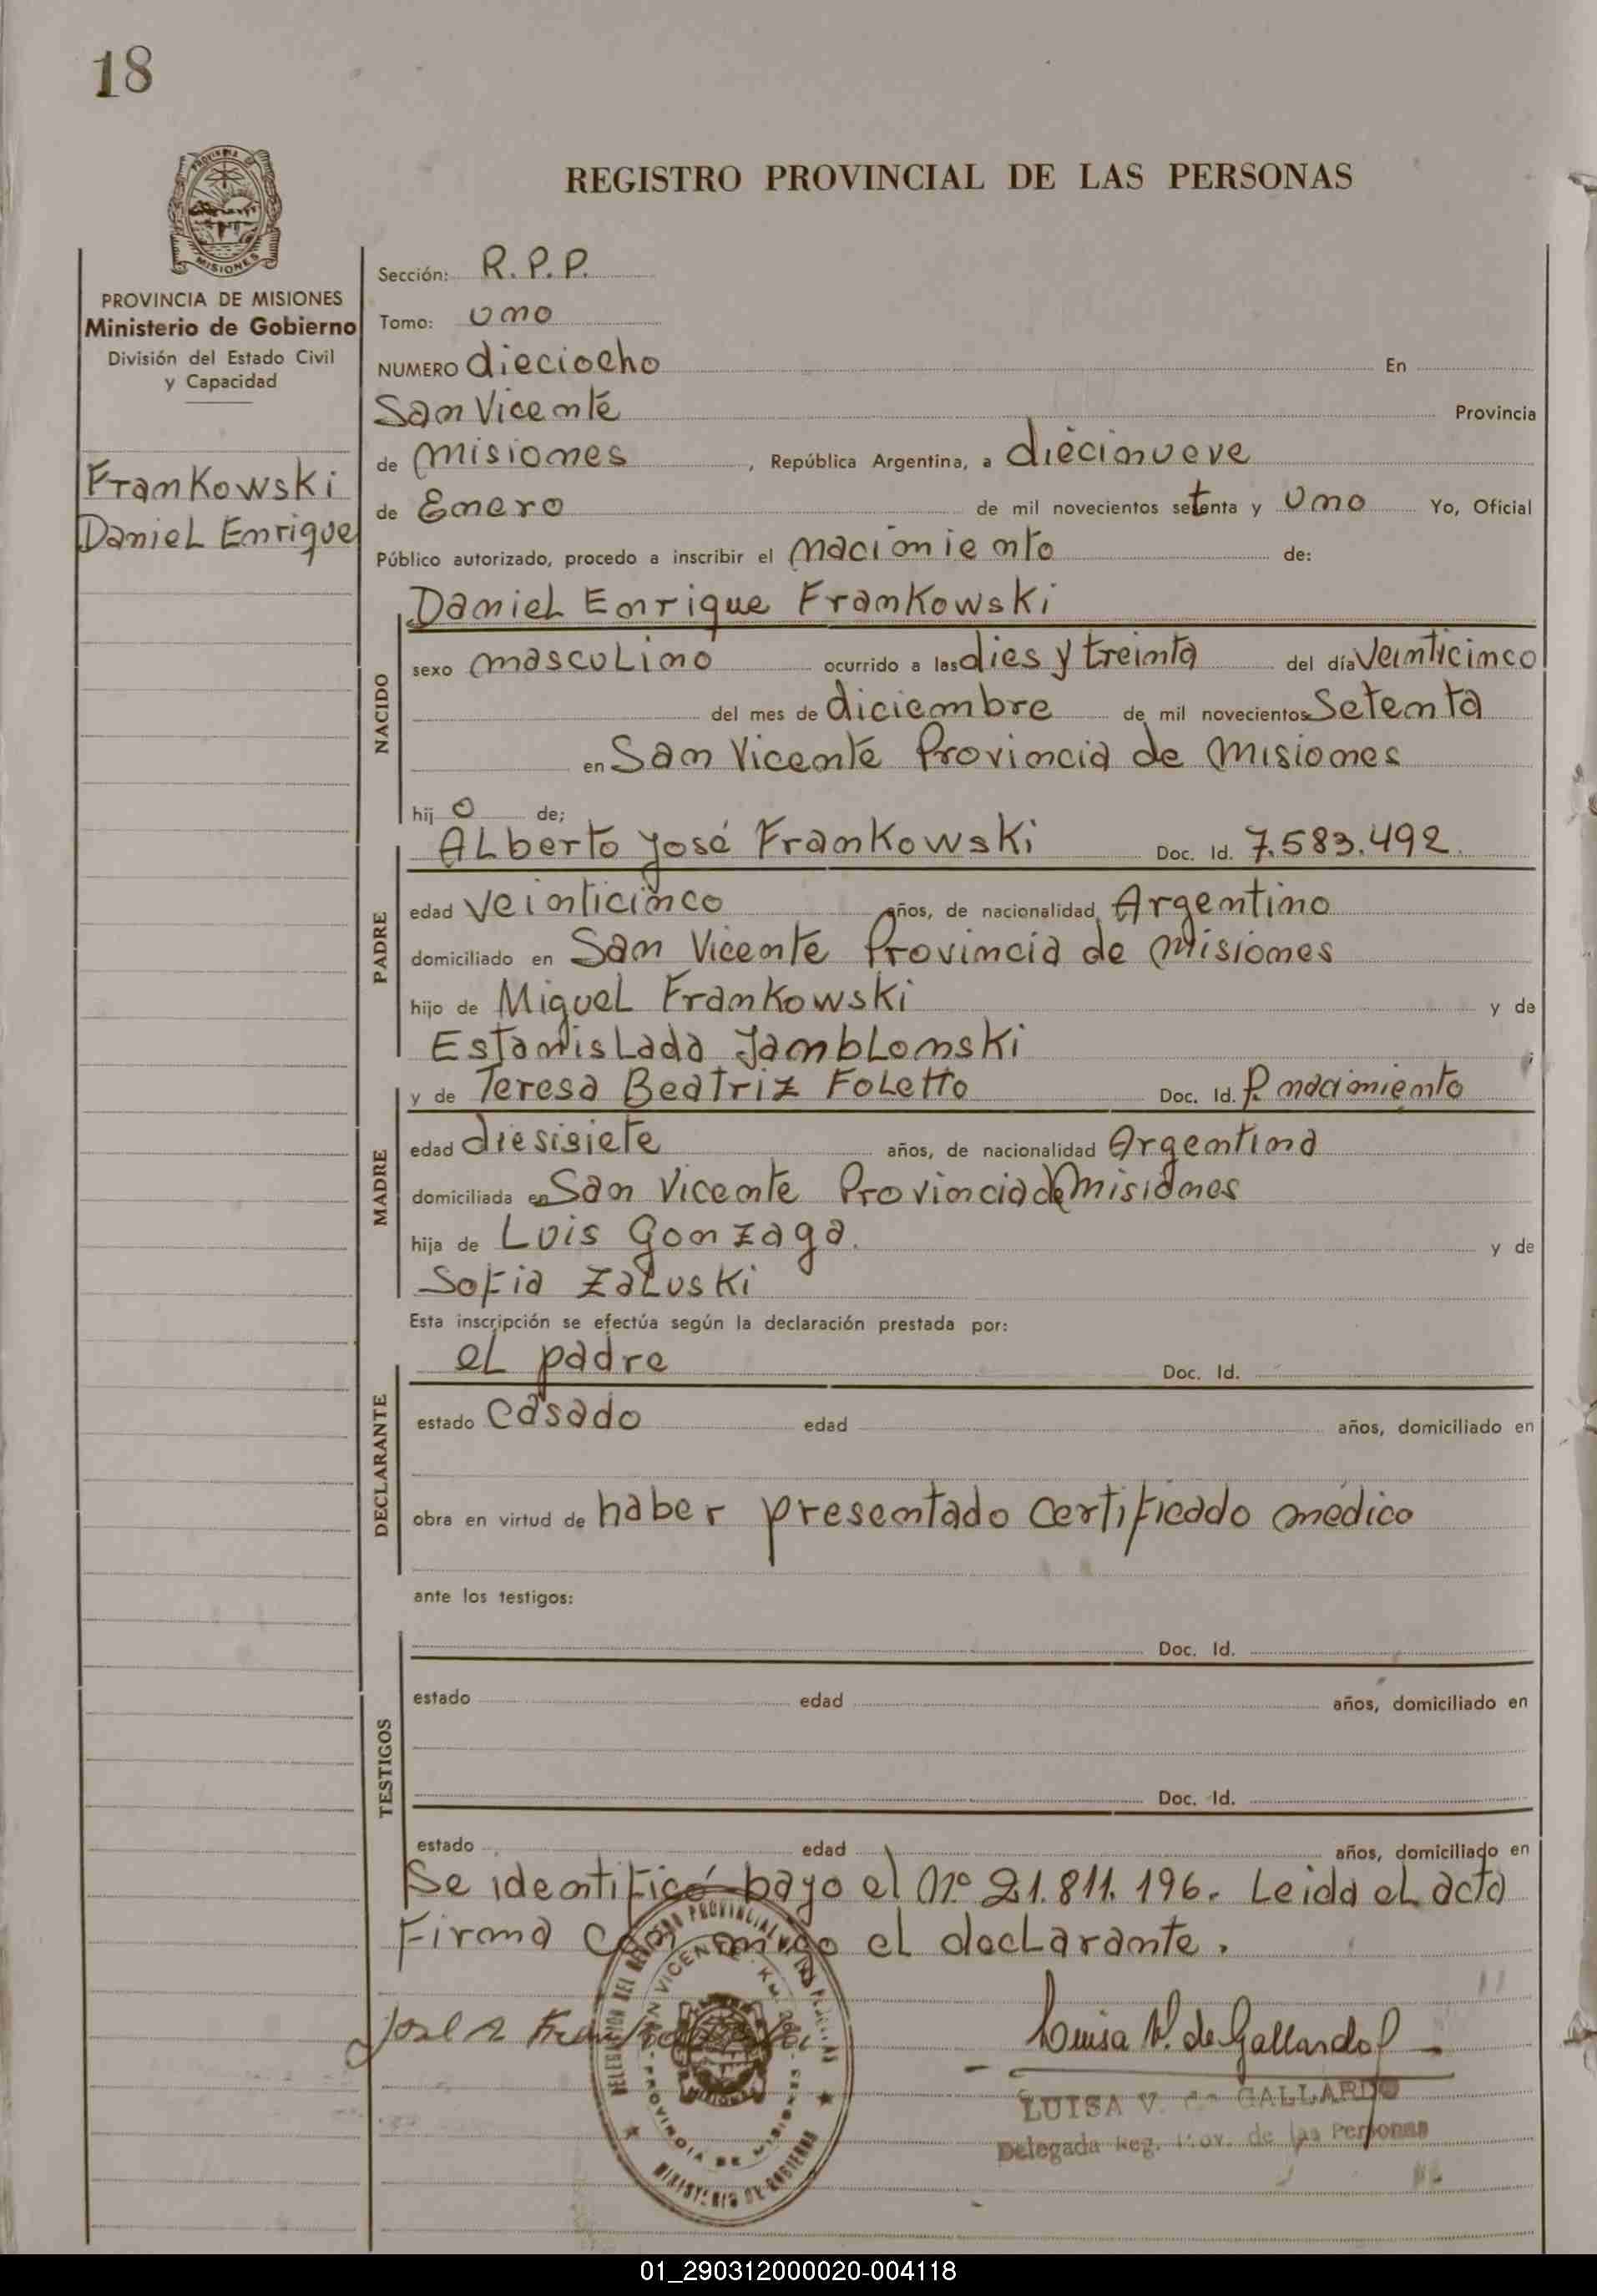 18
REGISTRO PROVINCIAL DE LAS PERSONAS
PROVINCIA DE MISIONES
Ministerio de Gobierno
División del Estado Civil
y Capacidad
Frankowski
Daniel Enrique
Sección: R.P.P.
Tomo: uno
NUMERO dieciocho En
San Vicente Provincia
de misiones, República Argentina, a diecinueve
de Enero de mil novecientos setenta y uno Yo, Oficial
Público autorizado, procedo a inscribir el nacimiento de:
Daniel Enrique Frankowski
NACIDO
sexo masculino ocurrido a las dies y treinta del día veinticinco
del mes de diciembre de mil novecientos setenta
en San Vicente Provincia de misiones
hij o de;
Alberto José Frankowski Doc. Id. 7.583.492
PADRE
edad veinticinco años, de nacionalidad Argentino
domiciliado en San Vicente Provincia de misiones
hijo de Miguel Frankowski y de
Estanislada Jamblonski
y de Teresa Beatriz Foletto Doc. Id. P. nacimiento
MADRE
edad diesisiete años, de nacionalidad Argentina
domiciliada en San Vicente Provincia de misiones
hija de Luis Gonzaga. y de
Sofia Zaluski
Esta inscripción se efectúa según la declaración prestada por:
el padre Doc. Id.
DECLARANTE
estado casado edad años, domiciliado en
obra en virtud de haber presentado certificado médico
ante los testigos:
Doc. Id.
TESTIGOS
estado edad años, domiciliado en
Doc. Id.
estado edad años, domiciliado en
Se identificó bayo el nº 21.811.196. Leida el acta
Firma con migo el declarante.
José A Frankowski
Luisa V. de Gallardo
LUISA V. de GALLARDO
Delegada Reg. Prov. de las Personas
PROVINCIA DE MISIONES
MINISTERIO DE GOBIERNO
01_290312000020-004118